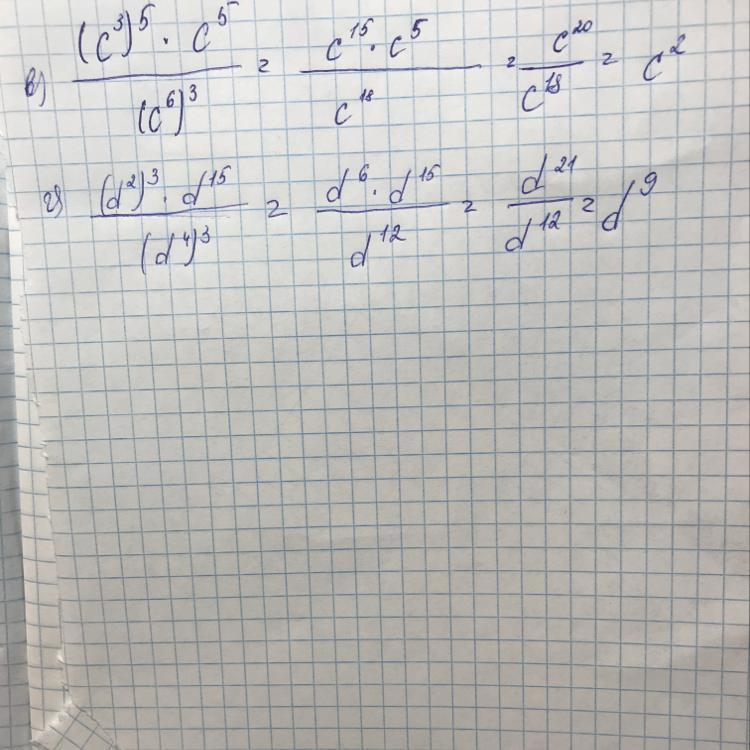 в) ((c³)⁵ · c⁵)/(c⁶)³ = (c¹⁵ · c⁵)/c¹⁸ = c²⁰/c¹⁸ = c²
г) ((d²)³ · d¹⁵)/(d⁴)³ = (d⁶ · d¹⁵)/d¹² = d²¹/d¹² = d⁹